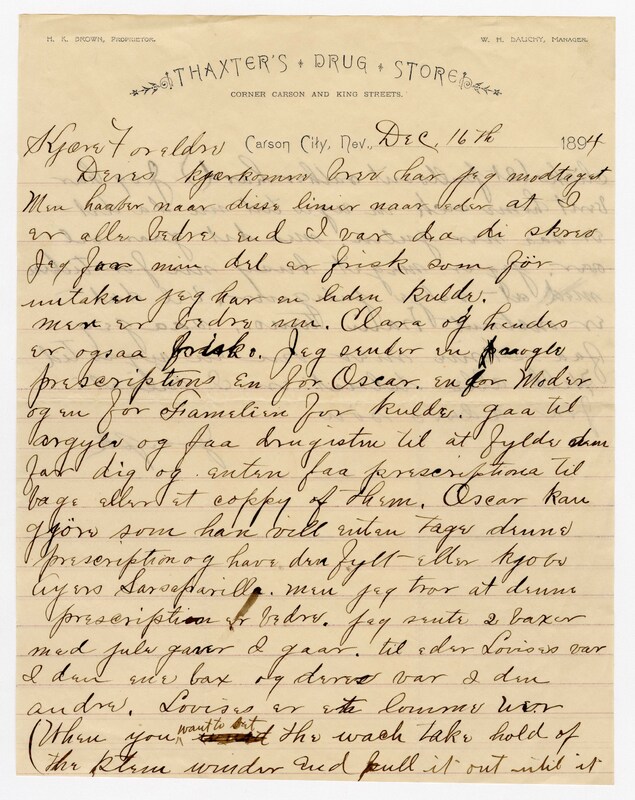 H. K. BROWN, PROPRIETOR. W. H. DAUCHY, MANAGER.
THAXTER'S DRUG STORE
CORNER CARSON AND KING STREETS.
Kjære Foreldre Carson City, Nev., Dec. 16th 1894
Deres kjærkomm brev har jeg modtaget
Men haaber naar disse linier naar eder at I
er alle bedre end I var da di skrev
Jeg for min del er frisk som för
untaken jeg har en liden kulde.
men er bedre nu. Clara og hendes
er ogsaa friske. Jeg sender en
prescriptions En for Oscar. en for Moder
og en for Famelien for kulde. gaa til
Argyle og faa drugisten til at fylde dem
for dig og enten faa prescriptiona til
bage eller et coppy of them. Oscar kan
gjöre som han vill enten tage denne
prescription og have den fylt eller kjøbe
Ayers Sarsaparilla. men jeg tror at denne
prescription er bedre. jeg sente 2 baxer
med jule gaver I gaar. til eder Lovises var
I den ene bax og deres var I den
andre. Lovises er et lomme uer
(When you want to set the wach take hold of
the stem winder and pull it out intil it